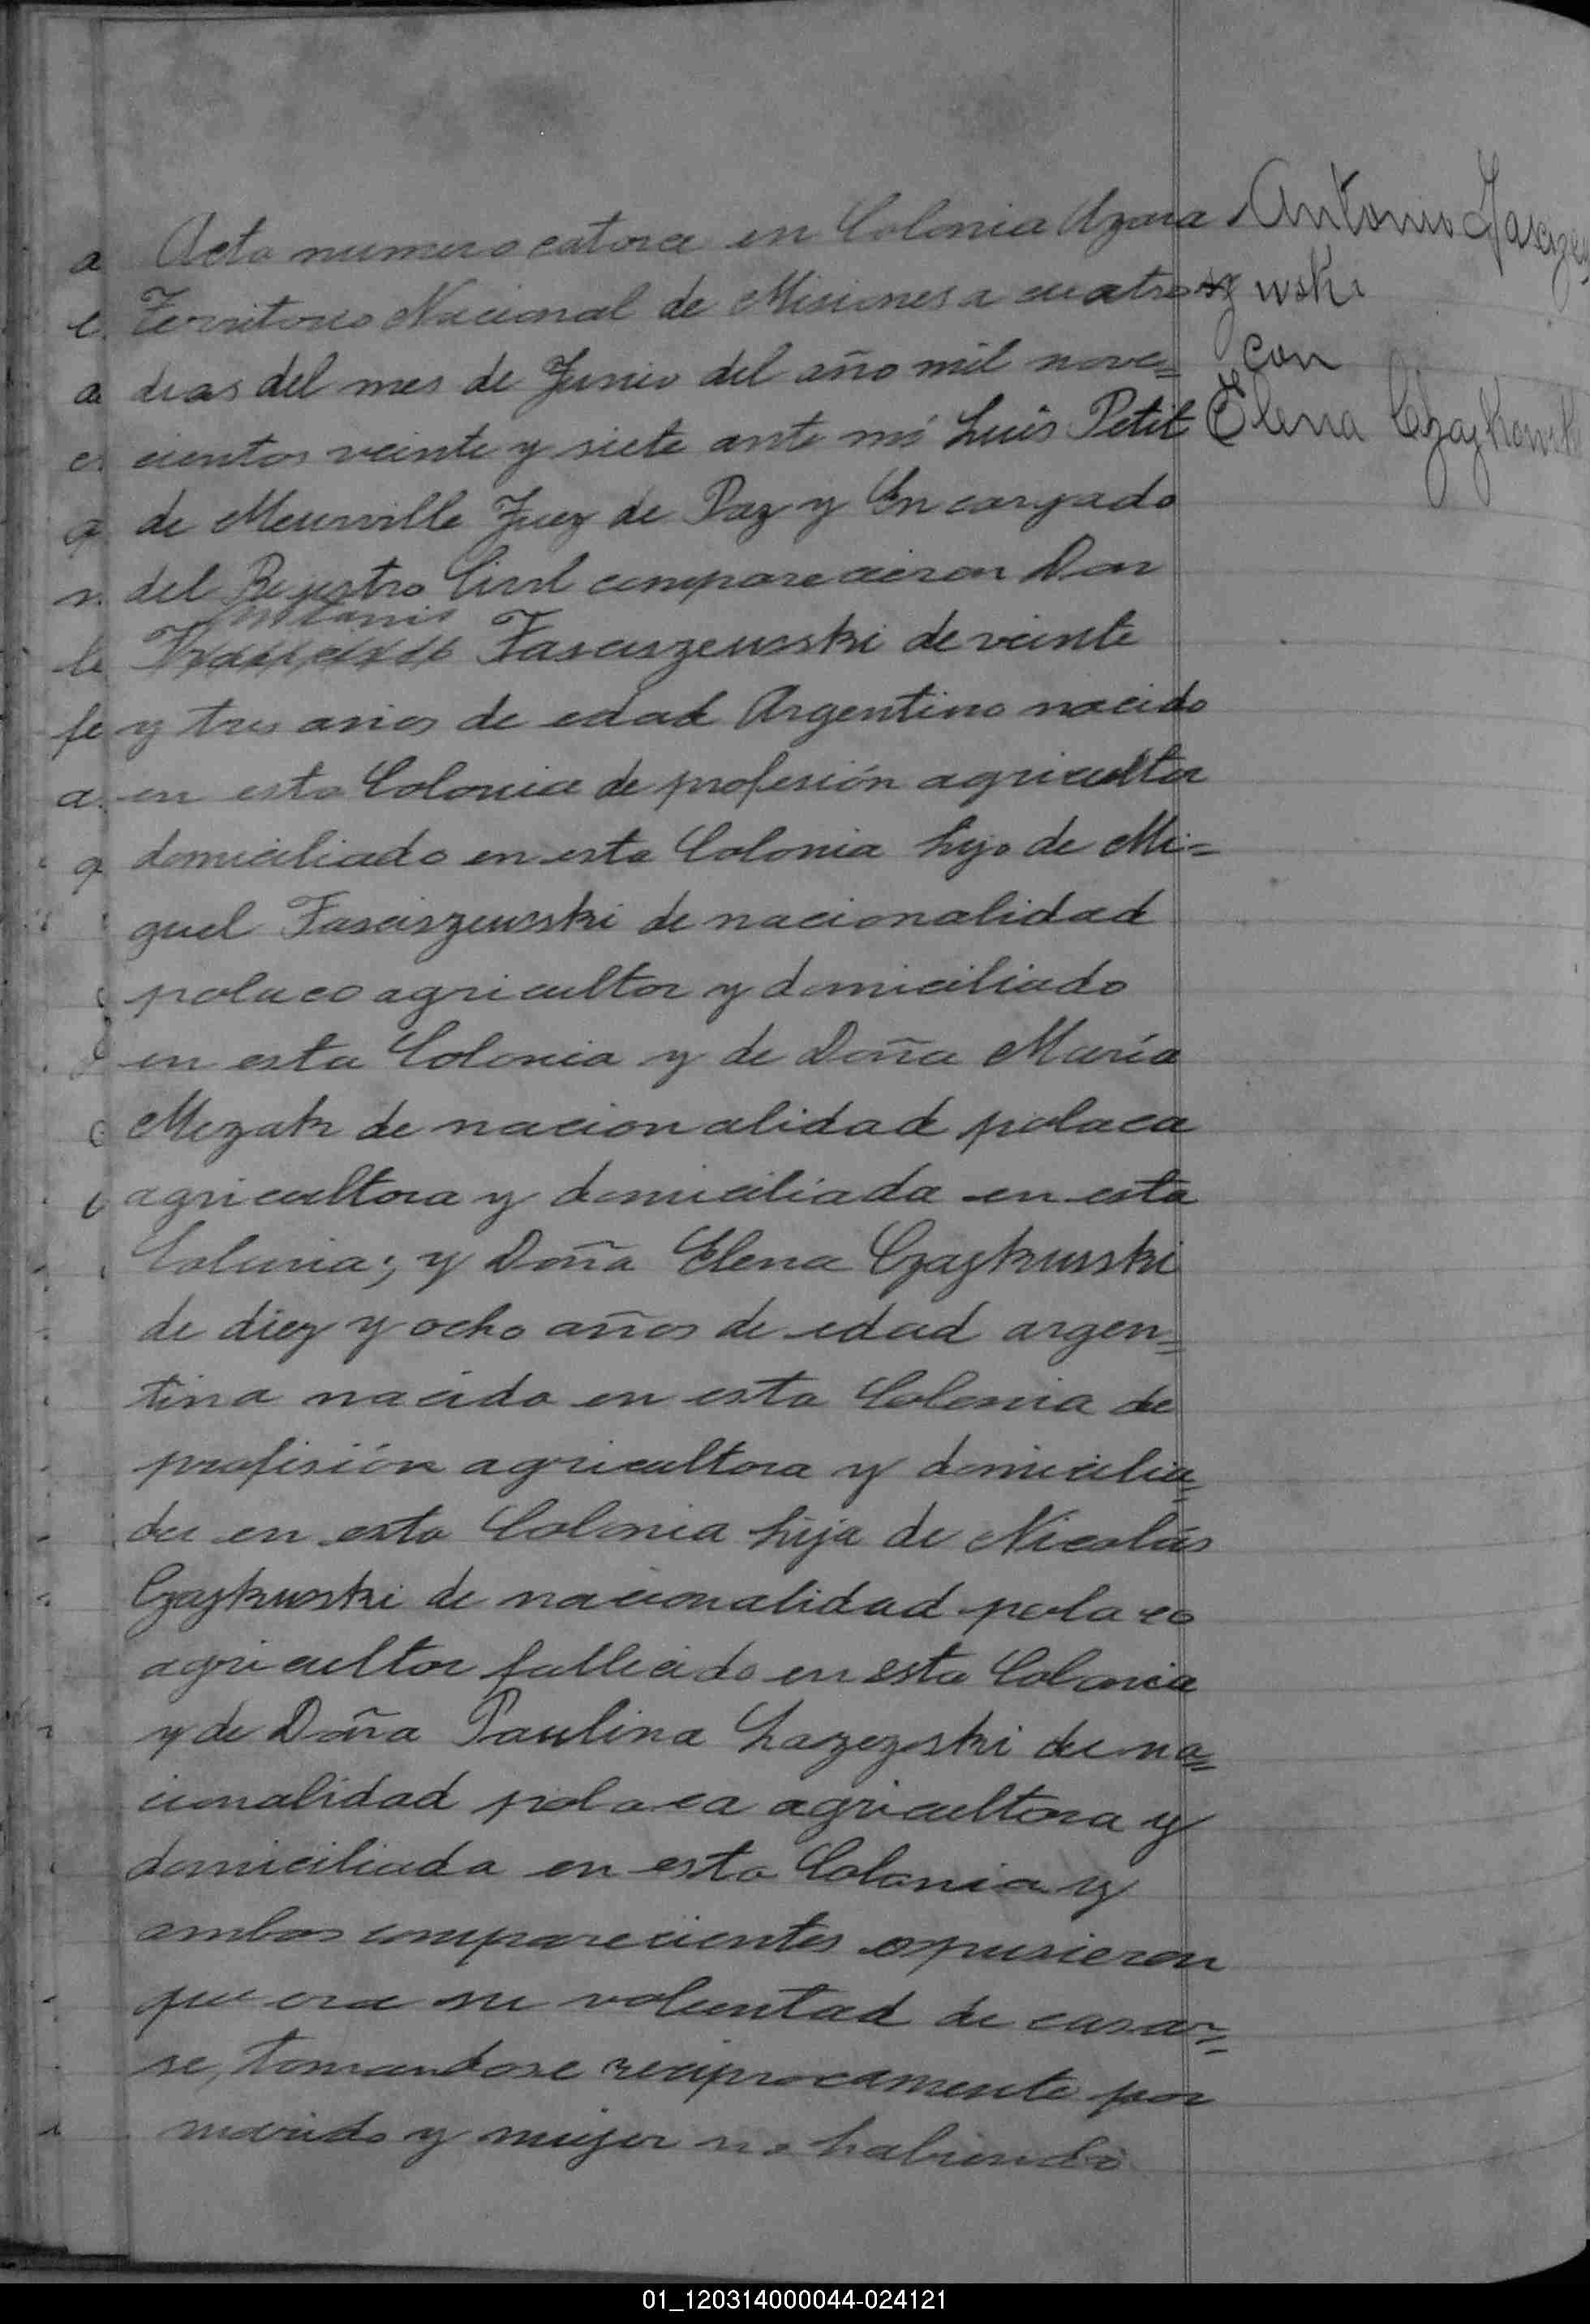 Acta numero catorce en Colonia Azara
Territorio Nacional de Misiones a cuatro
dias del mes de Junio del año mil nove=
cientos veinte y siete ante mi Luis Petit
de Meurville Juez de Paz y Encargado
del Registro Civil comparecieron Don
Fasciszewski de veinte
y tres años de edad Argentino nacido
en esta Colonia de profesión agricultor
domiciliado en esta Colonia hijo de Mi=
guel Fasciszewski de nacionalidad
polaco agricultor y domiciliado
en esta Colonia y de Doña María
Mezak de nacionalidad polaca
agricultora y domiciliada en esta
Colonia; y Doña Elena Czajkwski
de diez y ocho años de edad argen=
tina nacida en esta Colonia de
profesión agricultora y domicilia=
da en esta Colonia hija de Nicolás
Czajkwski de nacionalidad polaco
agricultor fallecido en esta Colonia
y de Doña Paulina de na=
cionalidad polaca agricultora y
domiciliada en esta Colonia y
ambos comparecientes expusieron
que era su voluntad de casar=
se, tomandose reciprocamente por
marido y mujer no habiendo
Antonio
wski
con
Elena Czajkowski
01_120314000044-024121